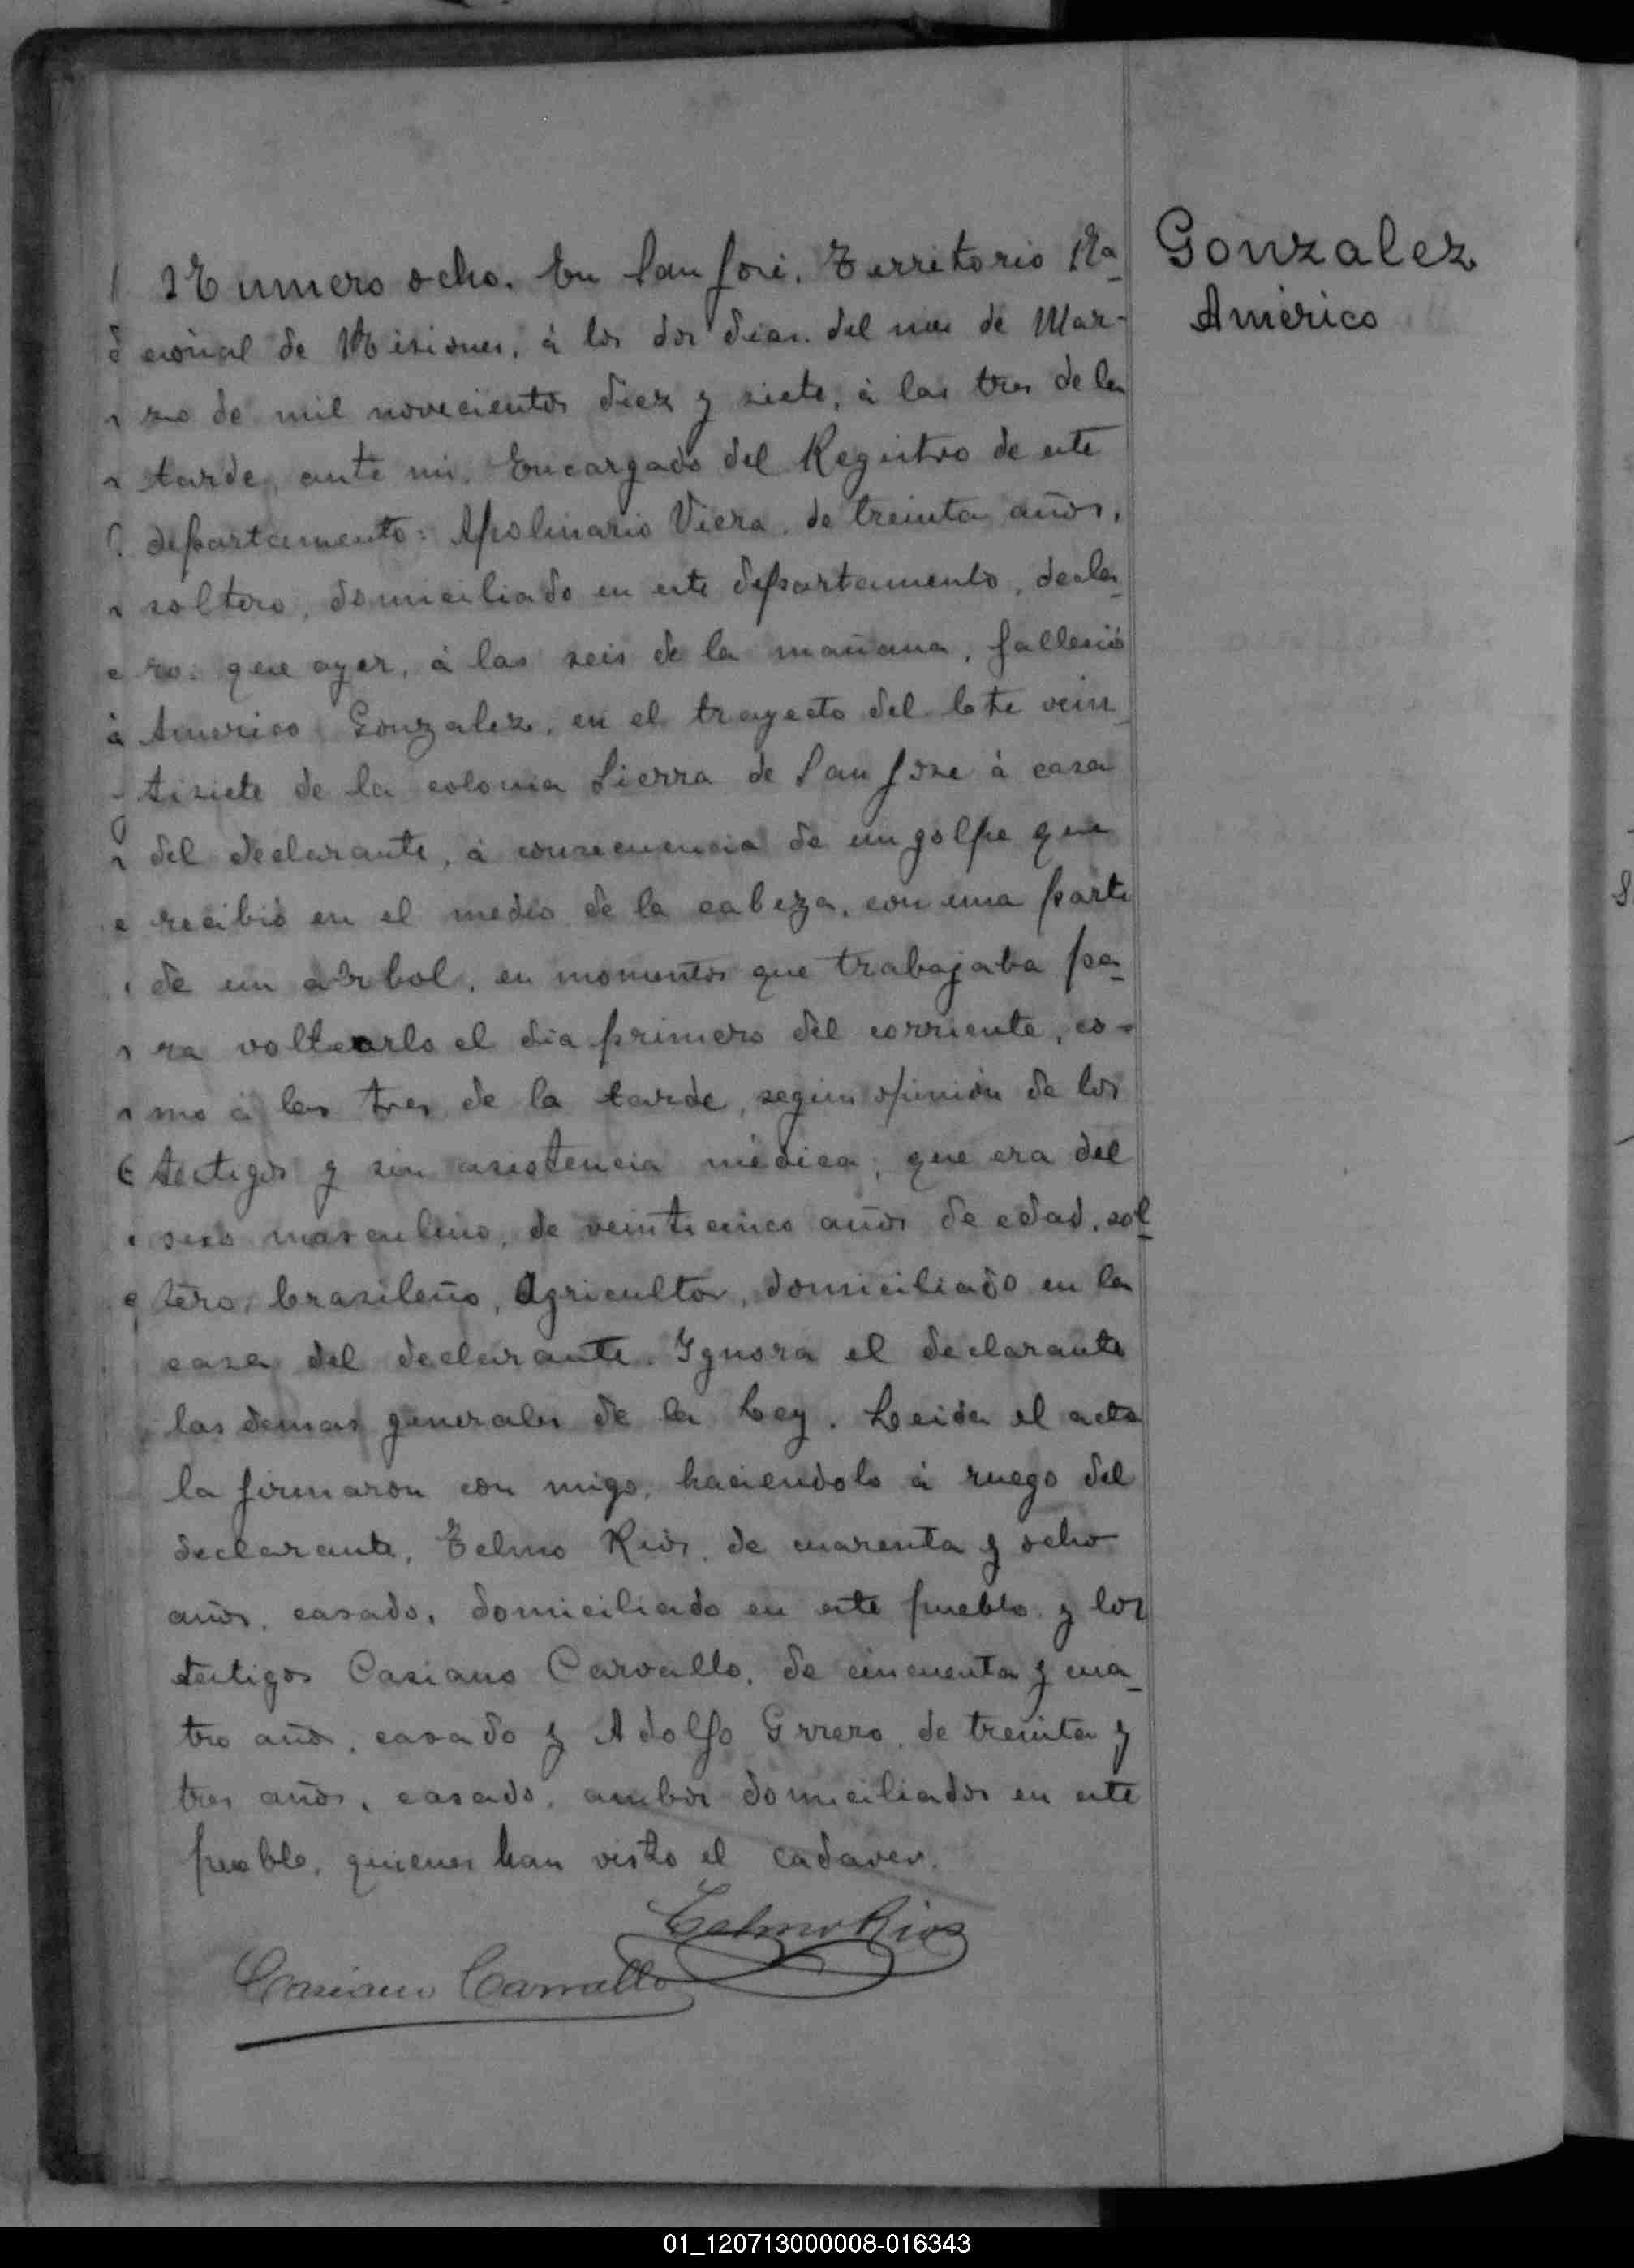 Numero ocho. En San José, Territorio Na-
cional de Misiones, á los dos dias del mes de Mar-
zo de mil novecientos diez y siete, á las tres de la
tarde, ante mi, Encargado del Registro de este
departamento: Apolinario Viera, de treinta años,
soltero, domiciliado en este departamento, decla-
ro: que ayer, á las seis de la mañana, falleció
Americo Gonzalez, en el trayecto del lote vein-
tisiete de la colonia Sierra de San José á casa
del declarante, á consecuencia de un golpe que
recibió en el medio de la cabeza, con una parte
de un arbol, en momentos que trabajaba pa-
ra voltearlo el dia primero del corriente, co-
mo á las tres de la tarde, segun opinión de los
testigos y sin asistencia médica; que era del
sexo masculino, de veinticinco años de edad, sol-
tero, brasileño, Agricultor, domiciliado en la
casa del declarante. Ignora el declarante
las demas generales de la Ley. Leida el acta
la firmaron con migo, haciendolo á ruego del
declarante, Telmo Rios, de cuarenta y ocho
años, casado, domiciliado en este pueblo y los
testigos Casiano Carvallo, de cincuenta y cua-
tro años, casado y Adolfo de treinta y
tres años, casado, ambos domiciliados en este
pueblo, quienes han visto el cadaver.
Telmo Rios
Casiano Carvallo
Gonzalez
Américo
01_120713000008-016343